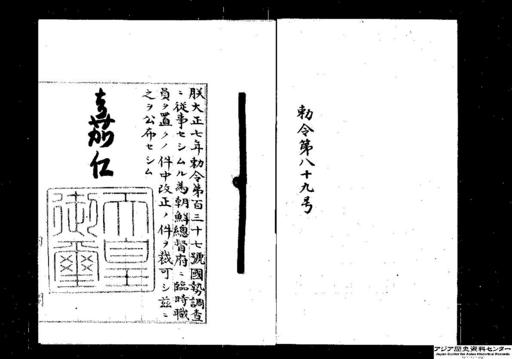 勅令第八十九号
朕大正七年勅令第百三十七號國勢調査
ニ從事セシムル為朝鮮總督府ニ臨時職
員ヲ置クノ件中改正ノ件ヲ裁可シ茲ニ
之ヲ公布セシム
嘉仁
天皇
御璽
アジア歴史資料センター
Japan Center for Asian Historical Records